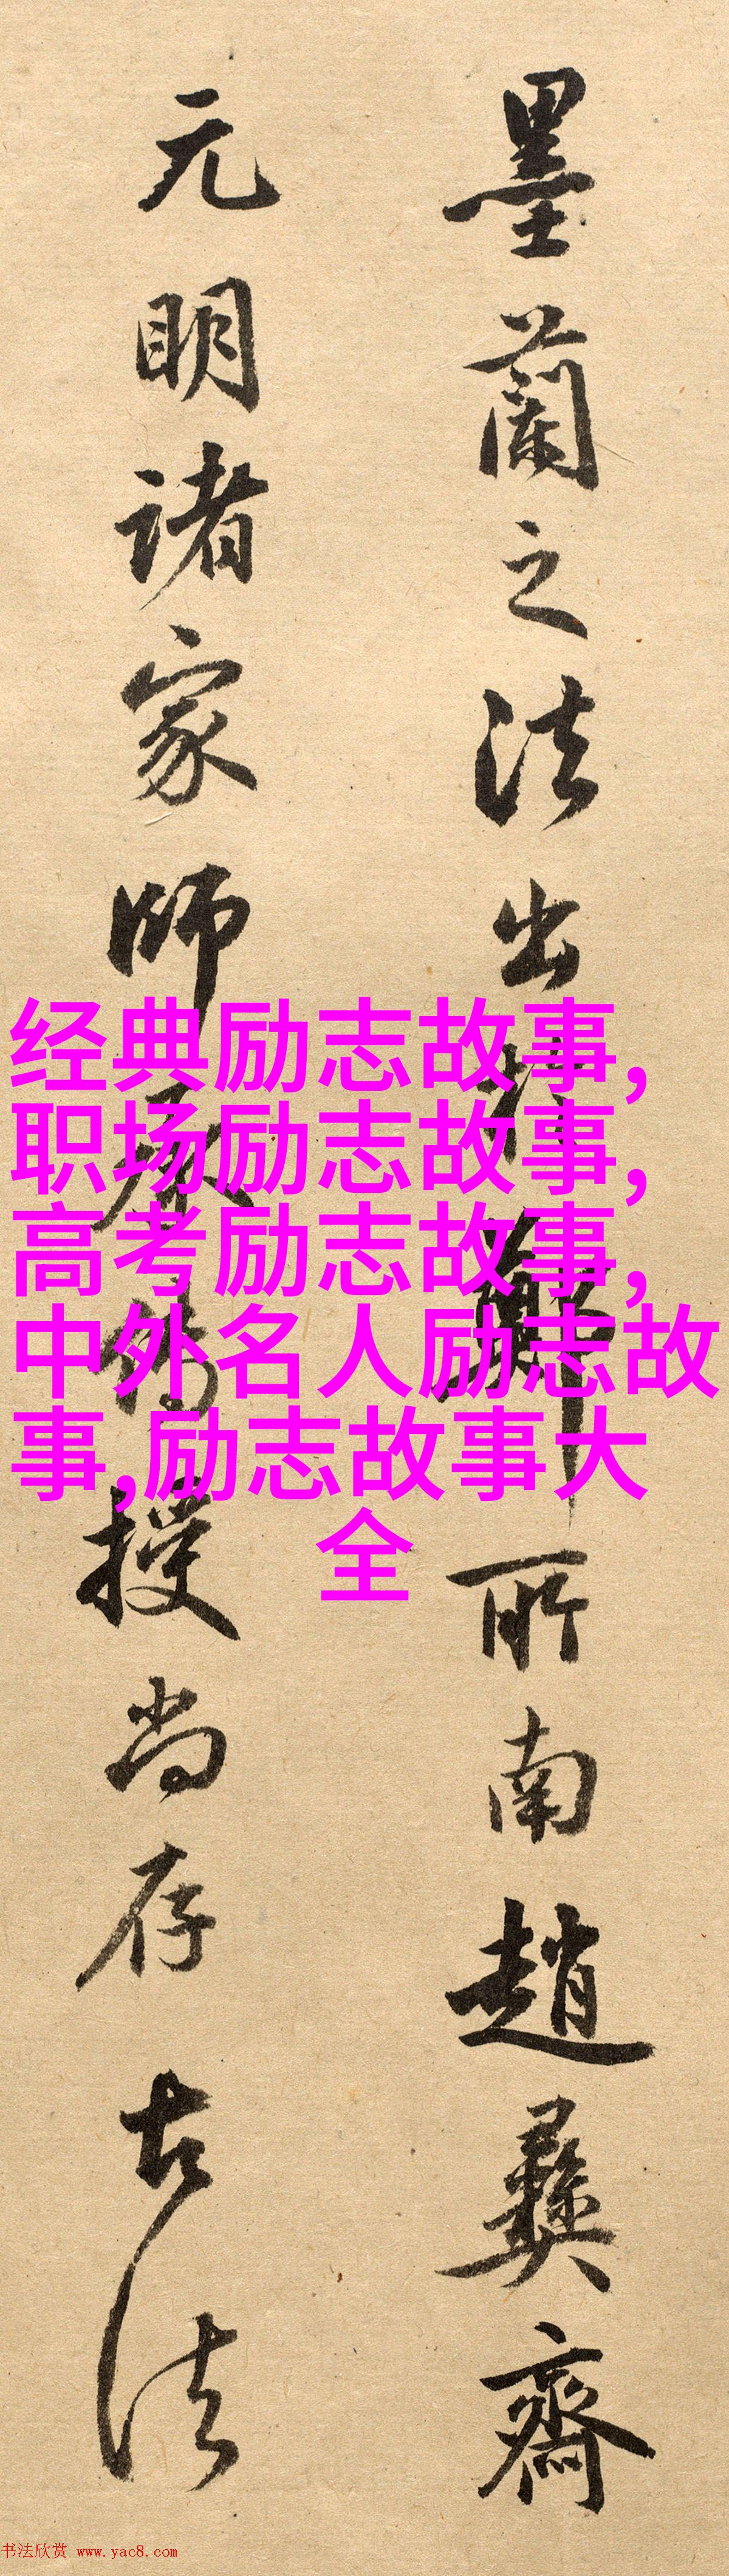 墨蘭之法出於鄭所南趙彝齋
元明諸家師承傳授尚存古法
经典励志故事,
职场励志故事,
高考励志故事,
中外名人励志故
事,励志故事大
全
书法欣赏 www.yac8.com